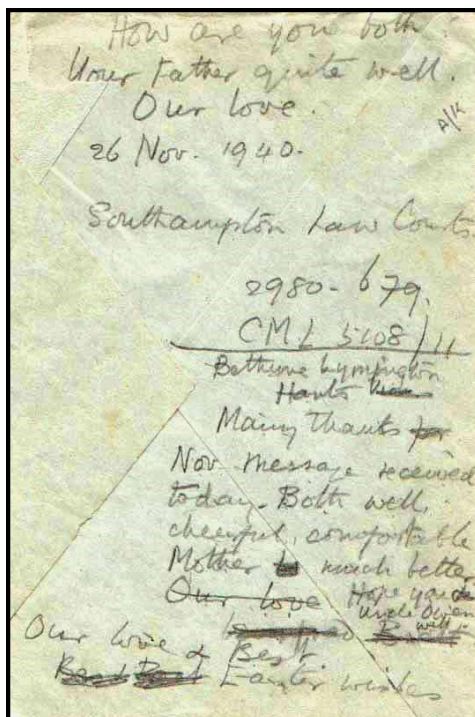 How are you both.
Your Father quite well.
Our love.
A/K
26 Nov. 1940.
Southampton Law Courts
2980 - 679.
CML 5108/11
Bethune Lymington
Hants
Many Thanks for
Nov message received
today. Both well,
cheerful, comfortable
Mother much better
Our love Hope you &
Uncle Owen
well.
Our love & Best
Easter wishes